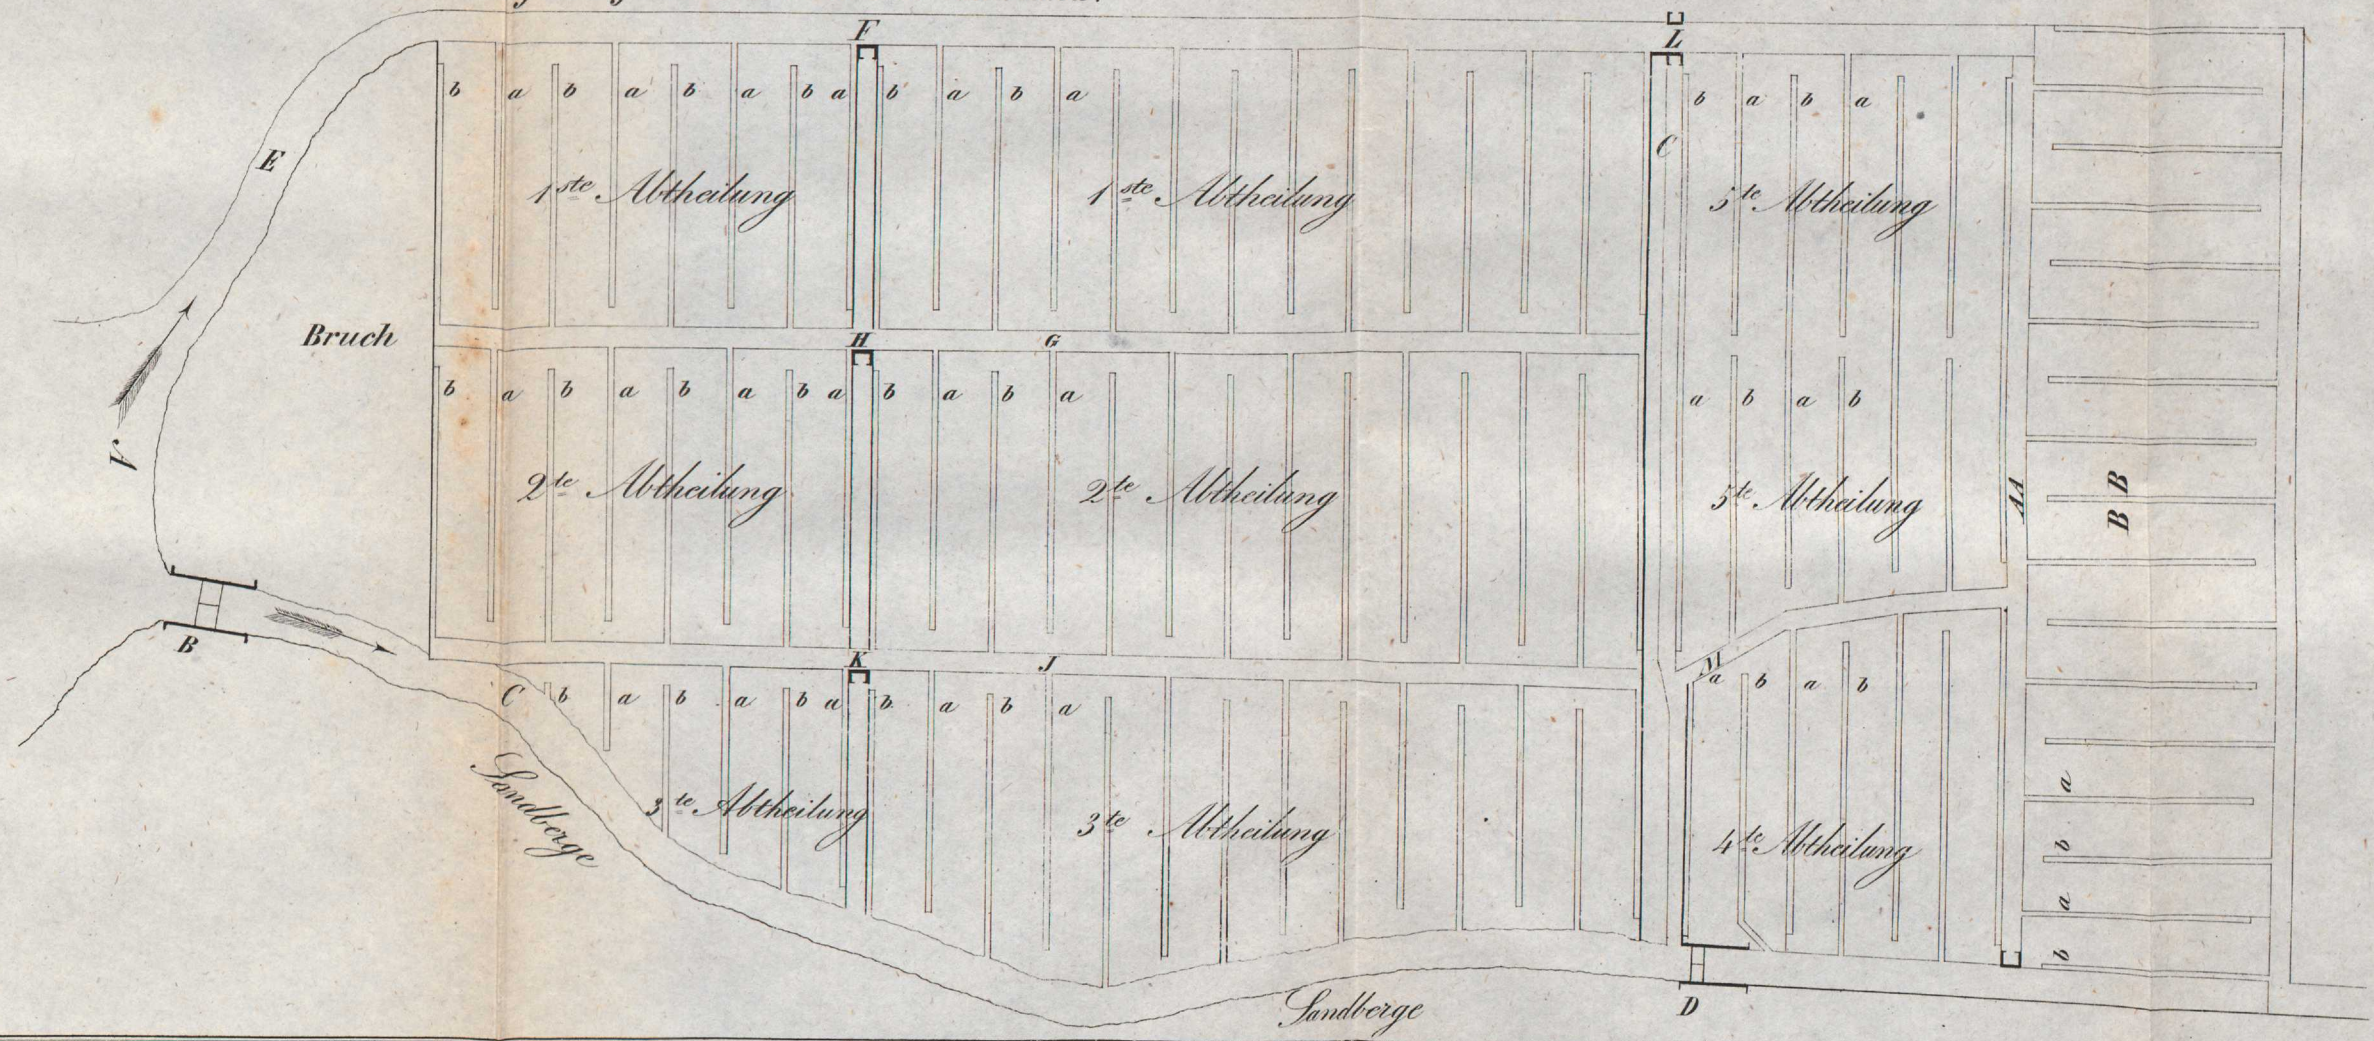 F
L
b a b a b a b a b a b a
b a b a
C
E
1ste Abtheilung
1ste Abtheilung
5te Abtheilung
Bruch
H
G
b a b a b a b a b a b a
a b a b
A
2te Abtheilung
2te Abtheilung
5te Abtheilung
AA
B B
B
K
J
M
C
b a b a b a b a b a
a b a b
Sandberge
3te Abtheilung
3te Abtheilung
4te Abtheilung
a
b
a
b
Sandberge
D